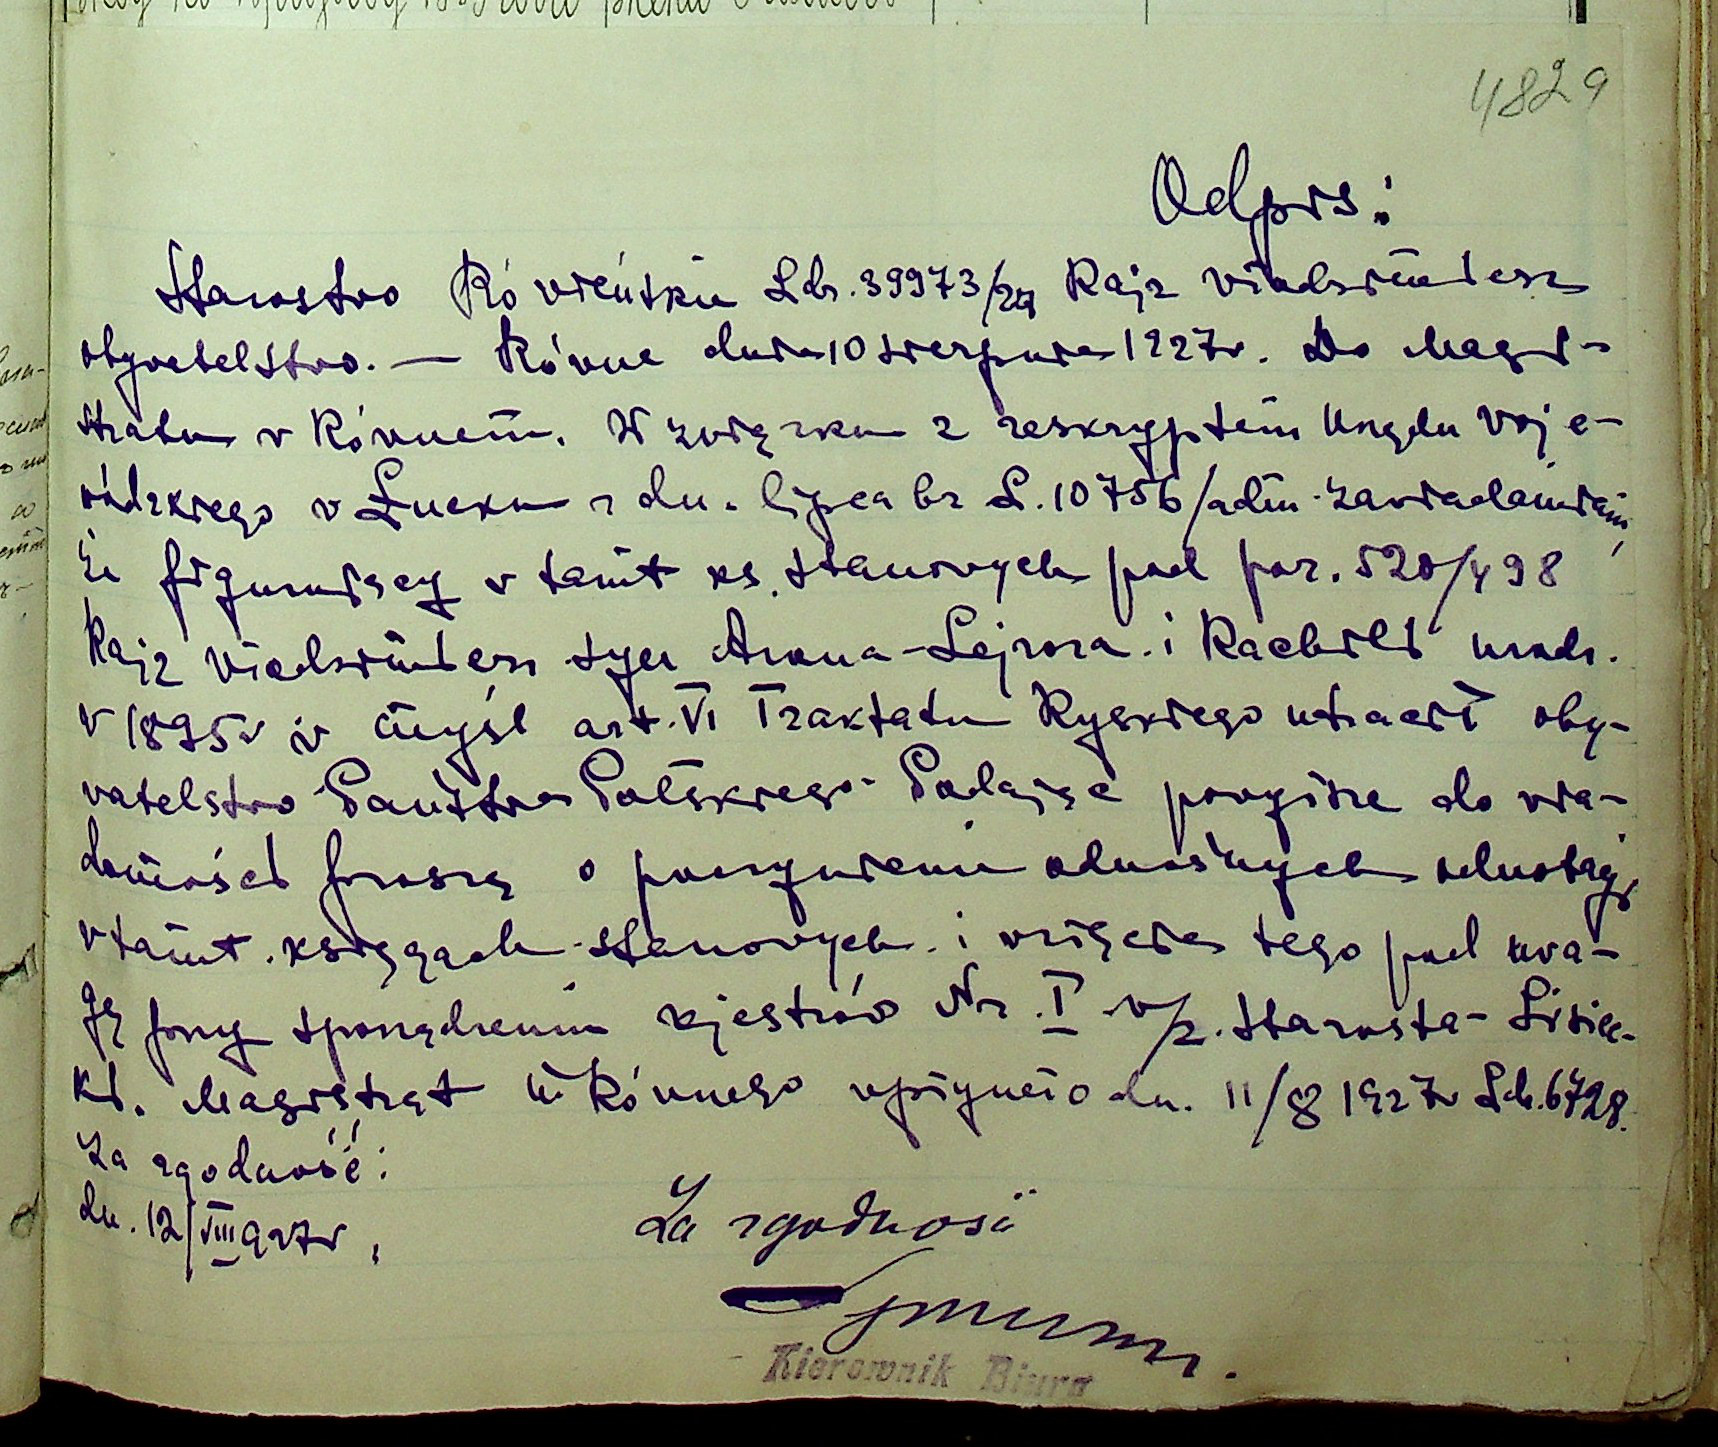 4829
Odpis:
Starostwo Rówieńskie Ldz. 39973/27 Kajz Windsziniberz
obywatelstwo. — Równe dnia 10 sierpnia 1927r. Do Magi-
stratu w Równem. W związku z reskryptem Urzędu Woje-
wódzkiego w Łucku z dn. lipca br L. 10756/adm. zawiadamiam,
że figurujący w tamt ks. stanowych pod poz. 520/498
Kajz syn Arona-Lejzora i Rachili urodz.
w 1895r w myśl art. VI Traktatu Ryskiego utracił oby-
watelstwo Państwa Polskiego. Podając powyższe do wia-
domości proszę o poczynienie odnośnych adnotacji
w tamt. księgach stanowych i wzięcie tego pod uwa-
gę przy sporządzeniu rejestrów Nr. I w/z. Starosta - Lisiec-
ki. Magistrat m Równego wpłynęło dn. 11/8 1927r Ldz. 6728.
Za zgodność:
dn. 12/VIII 927r,
Za zgodność
Kierownik Biura